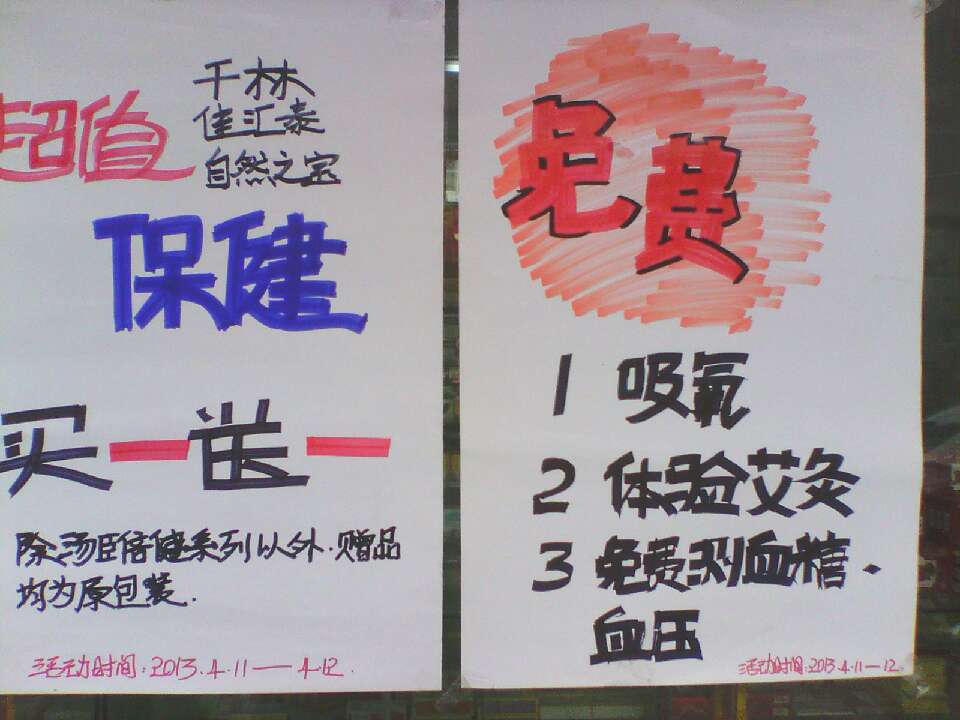 超值
千林
佳汇泰
自然之宝
保健
买一送一
除汤臣倍健系列以外.赠品
均为原包装.
活动时间:2013.4.11—4.12.
免费
1 吸氧
2 体验艾灸
3 免费测血糖.
血压
活动时间:2013.4.11—12.